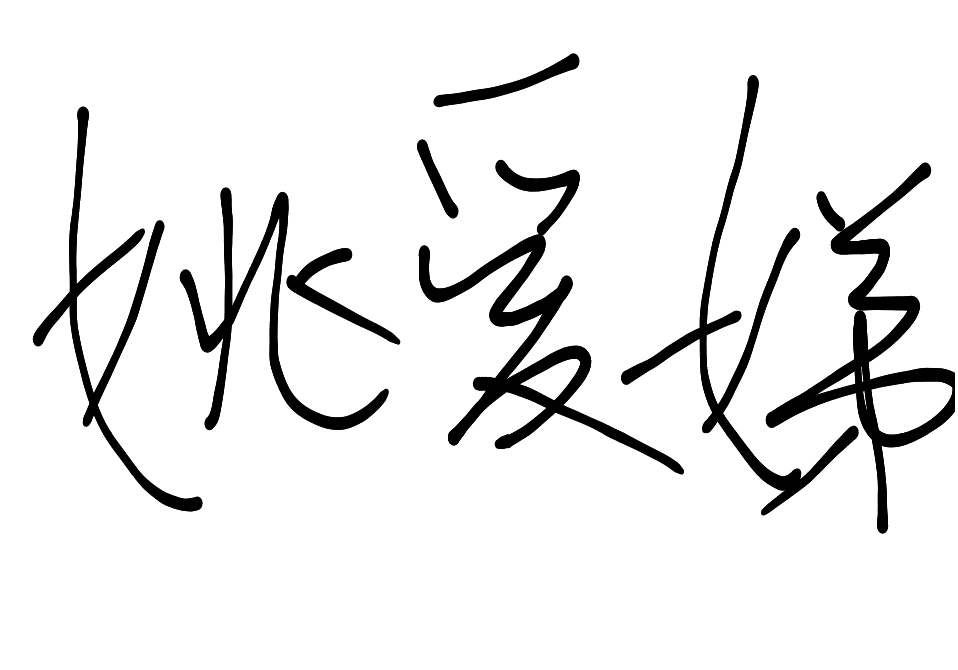 姚爱娣